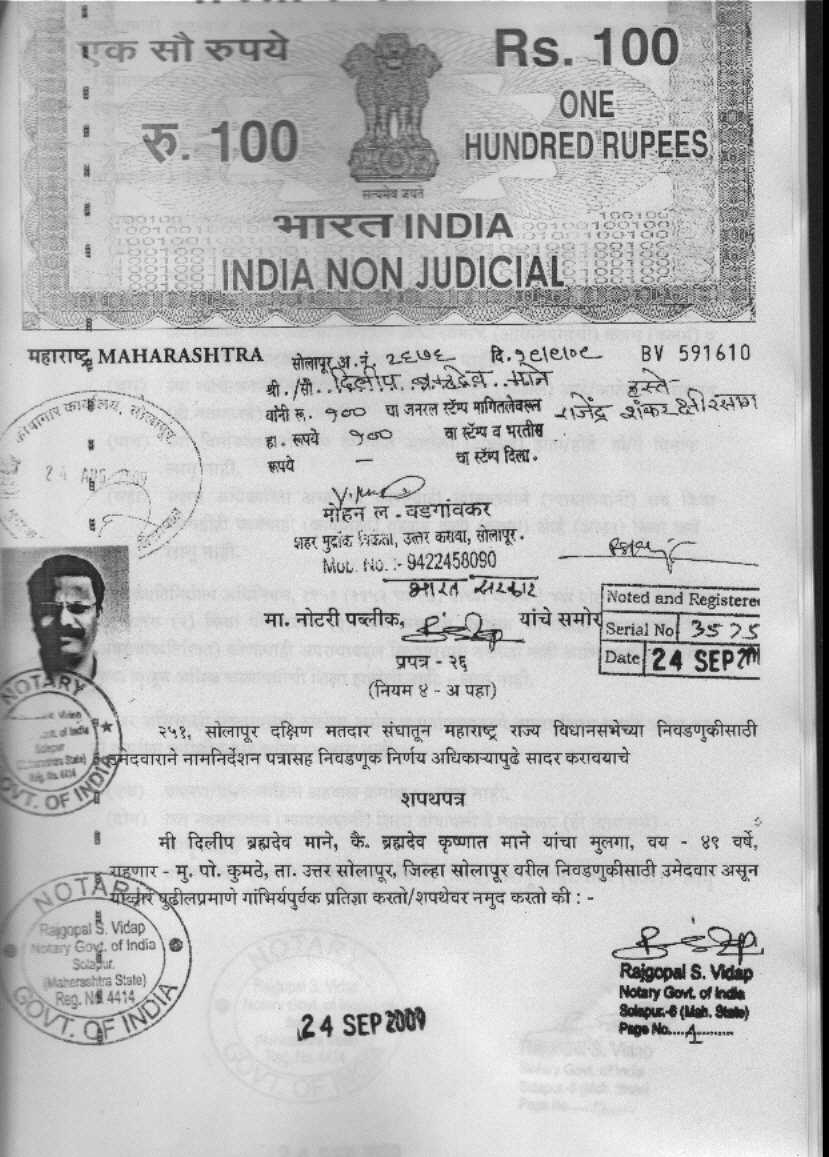 एक सौ रुपये
Rs. 100
रु. 100
ONE
HUNDRED RUPEES
सत्यमेव जयते
भारत INDIA
INDIA NON JUDICIAL
महाराष्ट्र MAHARASHTRA
BV 591610
सोलापूर अ. नं. २६७६ दि. १८।९।०९
श्री. /सौ. दिलीप ब्रह्मदेव माने हस्ते
यांनी रू. १०० चा जनरल स्टॅम्प मागितलेवरून राजेंद्र शंकर क्षीरसागर
हा. रूपये १०० चा स्टॅम्प व भरतीस
रूपये - चा स्टॅम्प दिला.
कोषागार कार्यालय, सोलापूर
24 AUG 2009
मोहन ल. वडगांवकर
शहर मुद्रांक विक्रेता, उत्तर कसबा, सोलापूर.
Mob. No. :- 9422458090
भारत सरकार
मा. नोटरी पब्लीक, यांचे समोर
Noted and Registered
Serial No 3575
Date 24 SEP 2009
प्रपत्र - २६
(नियम ४ - अ पहा)
२५१, सोलापूर दक्षिण मतदार संघातून महाराष्ट्र राज्य विधानसभेच्या निवडणुकीसाठी
उमेदवाराने नामनिर्देशन पत्रासह निवडणूक निर्णय अधिकाऱ्यापुढे सादर करावयाचे
शपथपत्र
मी दिलीप ब्रह्मदेव माने, कै. ब्रह्मदेव कृष्णात माने यांचा मुलगा, वय - ४९ वर्षे,
राहणार - मु. पो. कुमठे, ता. उत्तर सोलापूर, जिल्हा सोलापूर वरील निवडणुकीसाठी उमेदवार असून
पुढीलप्रमाणे गांभिर्यपुर्वक प्रतिज्ञा करतो/शपथेवर नमुद करतो की : -
NOTARY
Rajgopal S. Vidap
Notary Govt. of India
Solapur.
(Maharashtra State)
Reg. No. 4414
GOVT. OF INDIA
24 SEP 2009
Rajgopal S. Vidap
Notary Govt. of India
Solapur.-6 (Mah. State)
Page No.....1..........